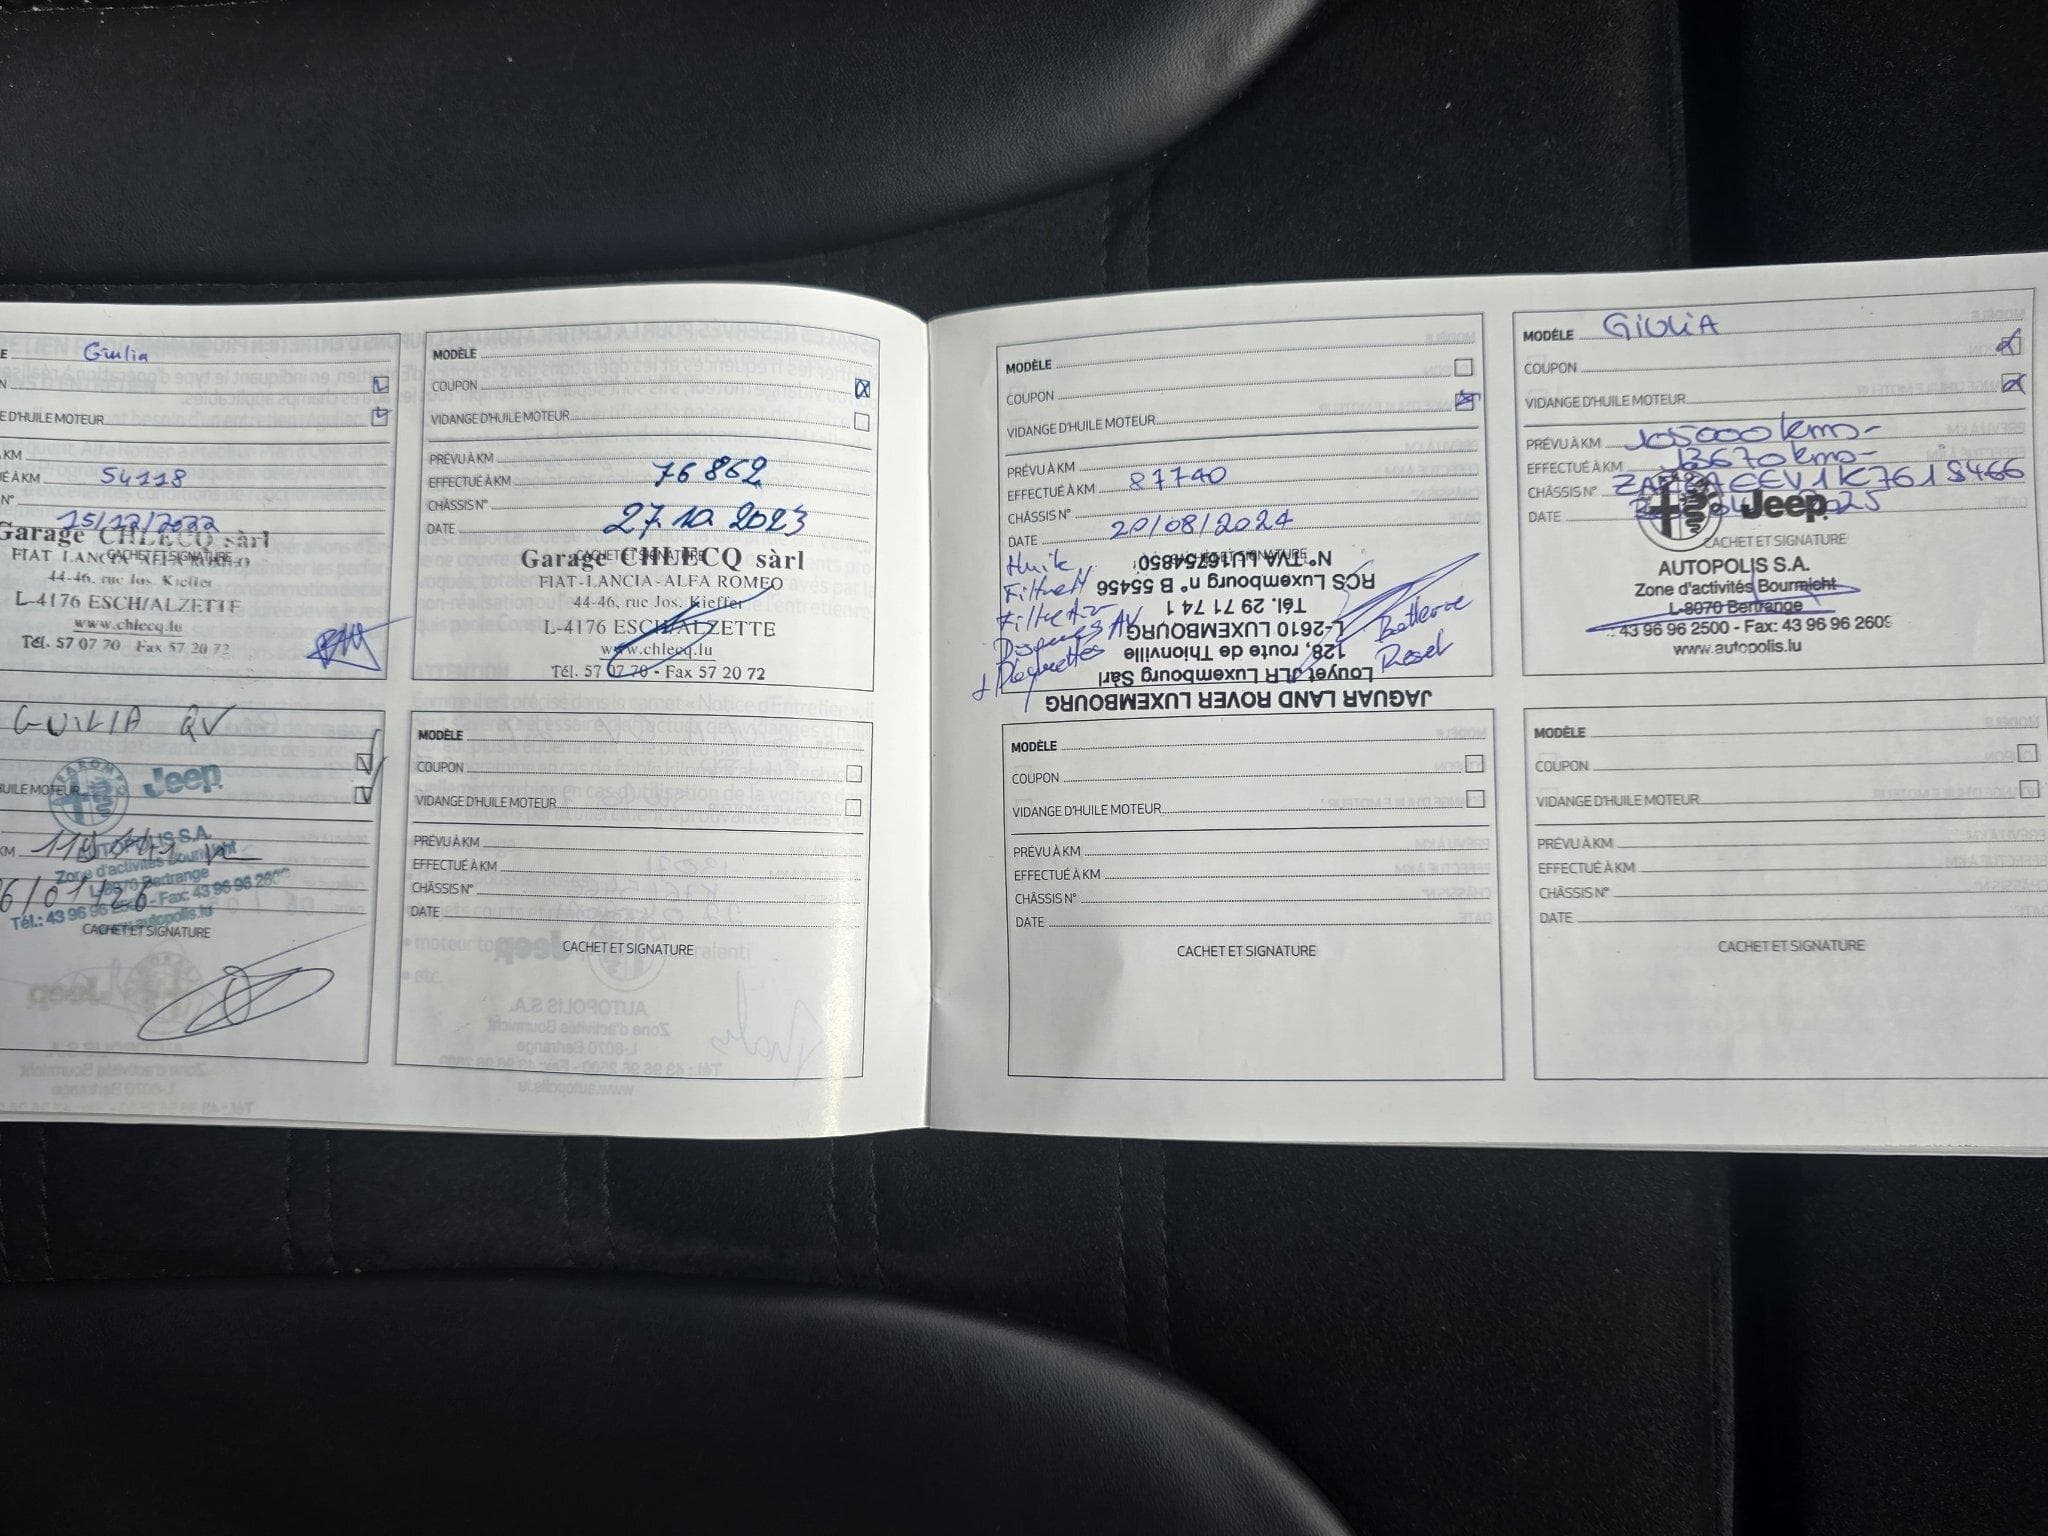 Giulia
E HUILE MOTEUR
KM
É À KM 54118
N°
15/12/2022
CACHET ET SIGNATURE
Garage CHLECQ sàrl
FIAT LANCIA ALFA ROMEO
44-46, rue Jos. Kieffer
L-4176 ESCH/ALZETTE
www.chlecq.lu
Tél. 57 07 70 Fax 57 20 72
MODÈLE
COUPON
VIDANGE D'HUILE MOTEUR
PRÉVU À KM
EFFECTUÉ À KM 76862
CHÂSSIS N°
DATE 27.10.2023
CACHET ET SIGNATURE
Garage CHLECQ sàrl
FIAT-LANCIA-ALFA ROMEO
44-46, rue Jos. Kieffer
L-4176 ESCH/ALZETTE
www.chlecq.lu
Tél. 57 07 70 - Fax 57 20 72
GUILIA QV
UILE MOTEUR
Jeep
KM
AUTOPOLIS S.A.
Zone d'activités Bourmicht
L-8070 Bertrange
Tél.: 43 96 96 2500 - Fax: 43 96 96 2609
www.autopolis.lu
6/01/26
CACHET ET SIGNATURE
MODÈLE
COUPON
VIDANGE D'HUILE MOTEUR
PRÉVU À KM
EFFECTUÉ À KM
CHÂSSIS N°
DATE
CACHET ET SIGNATURE
MODÈLE
COUPON
VIDANGE D'HUILE MOTEUR
PRÉVU À KM
EFFECTUÉ À KM 87740
CHÂSSIS N°
DATE 20/08/2024
CACHET ET SIGNATURE
Huile
Filtre H
Filtre Air
Disques AV
+ Plaquettes
Batterie
Reset
JAGUAR LAND ROVER LUXEMBOURG
Louyet JLR Luxembourg Sàrl
128, route de Thionville
L-2610 LUXEMBOURG
Tél. 29 71 74 1
RCS Luxembourg n° B 55456
N° TVA LU16754850
MODÈLE
COUPON
VIDANGE D'HUILE MOTEUR
PRÉVU À KM
EFFECTUÉ À KM
CHÂSSIS N°
DATE
CACHET ET SIGNATURE
MODÈLE GIULIA
COUPON
VIDANGE D'HUILE MOTEUR
PRÉVU À KM 105000 kms-
EFFECTUÉ À KM
CHÂSSIS N°
DATE
Jeep
CACHET ET SIGNATURE
AUTOPOLIS S.A.
Zone d'activités Bourmicht
L-8070 Bertrange
43 96 96 2500 - Fax: 43 96 96 2609
www.autopolis.lu
MODÈLE
COUPON
VIDANGE D'HUILE MOTEUR
PRÉVU À KM
EFFECTUÉ À KM
CHÂSSIS N°
DATE
CACHET ET SIGNATURE